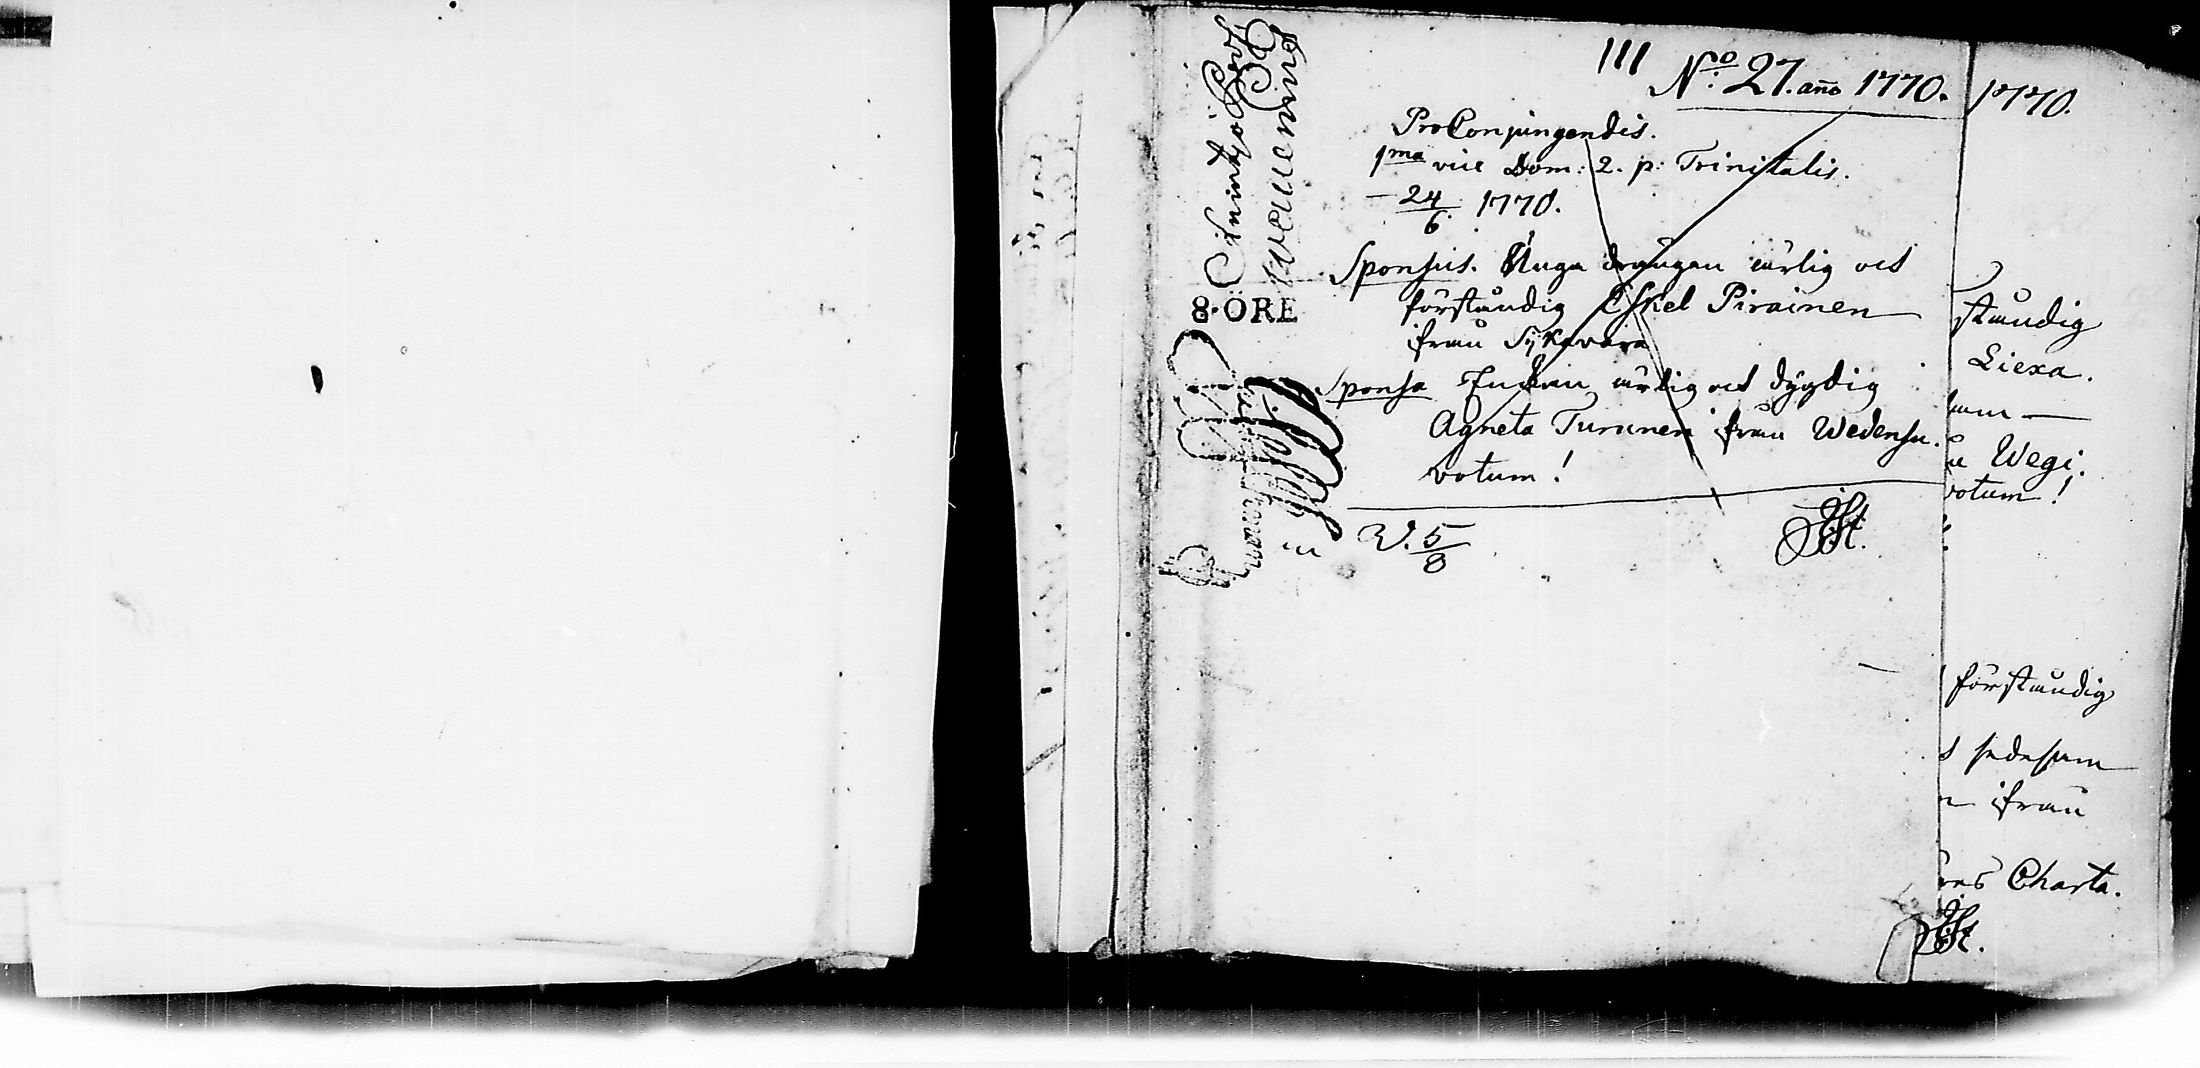 111
No: 27. año 1770.
Pro Conjungendis.
1ma vice Dom: 2. p: Trinitatis.
24/6 1770.
Sponsus. Unga drängen ärlig och
förståndig Eskel Pirainen
ifrån Tykävara
Sponsa Enkan ärlig och dygdig
Agneta Turunen ifrån Wedensu.
votum!
W. 5/8
8·ÖRE
1770.
ståndig
Liexa.
Wegi.
votum!
förståndig
sedesam
ifrån
Charta.